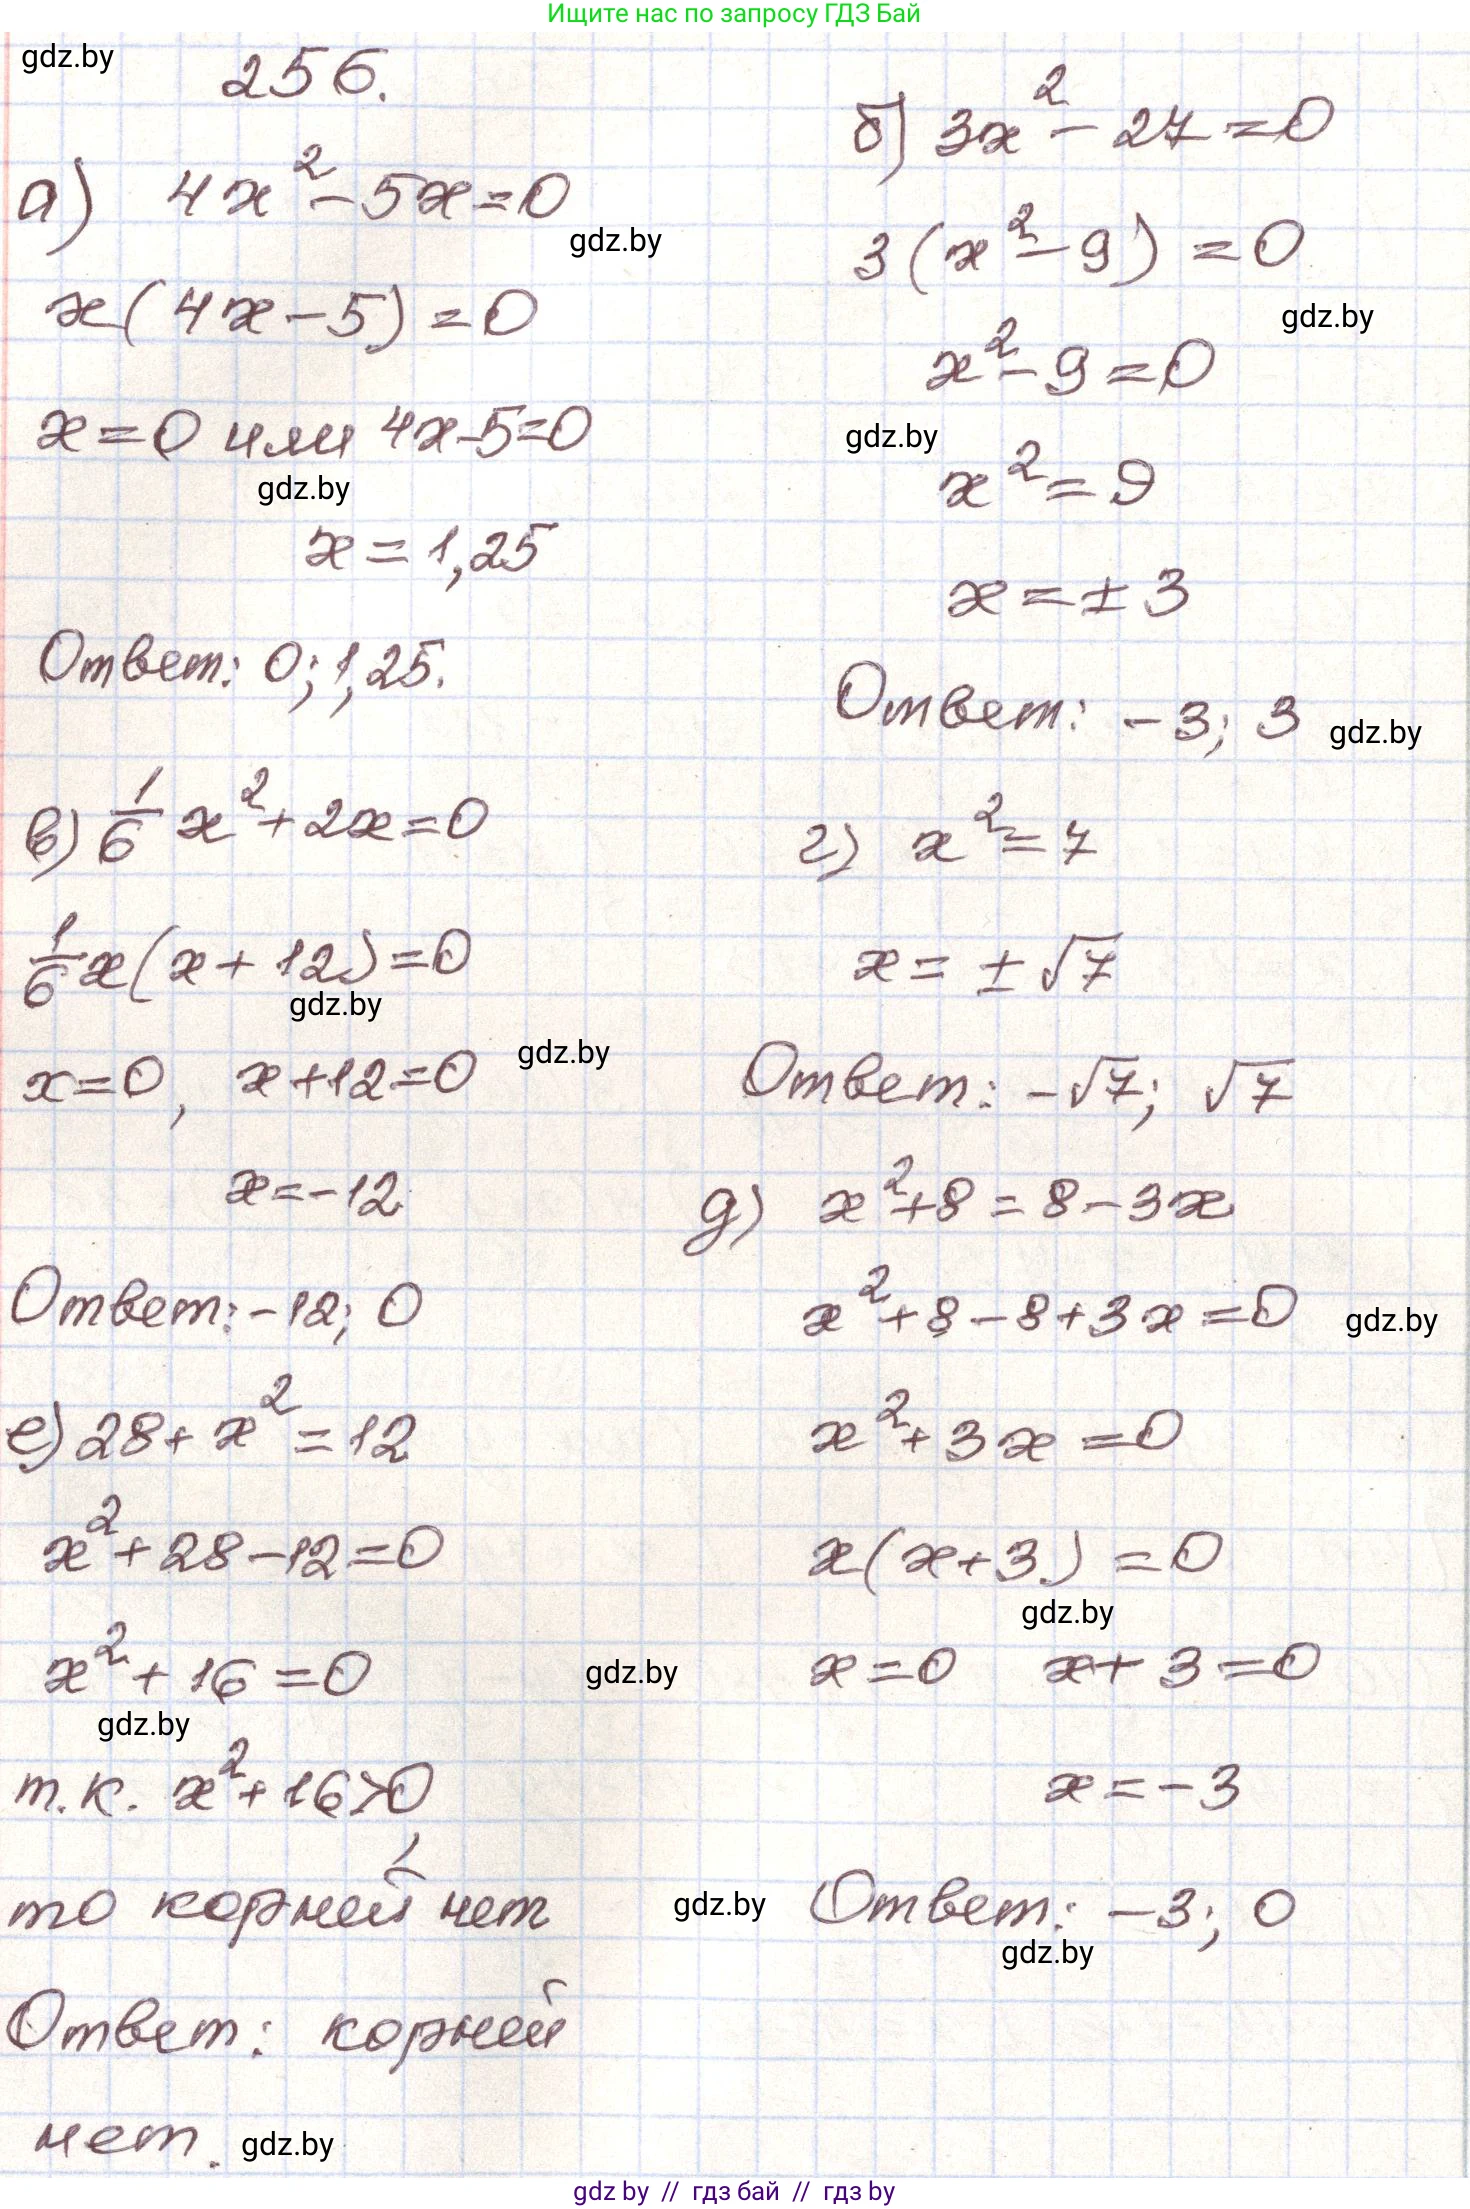 Ищите нас по запросу ГДЗ Бай
gdz.by
256.
а) 4x² - 5x = 0
gdz.by
x(4x - 5) = 0
x = 0 или 4x - 5 = 0
gdz.by
x = 1,25
Ответ: 0; 1,25.
б) 3x² - 27 = 0
3(x² - 9) = 0
gdz.by
x² - 9 = 0
gdz.by
x² = 9
x = ± 3
Ответ: -3; 3
gdz.by
в) 1/6 x² + 2x = 0
1/6 x(x + 12) = 0
gdz.by
gdz.by
x = 0, x + 12 = 0
x = -12
Ответ: -12; 0
г) x² = 7
x = ± √7
Ответ: -√7; √7
д) x² + 8 = 8 - 3x
x² + 8 - 8 + 3x = 0
gdz.by
x² + 3x = 0
x(x + 3) = 0
gdz.by
x = 0 x + 3 = 0
x = -3
Ответ: -3; 0
gdz.by
е) 28 + x² = 12
x² + 28 - 12 = 0
x² + 16 = 0
gdz.by
gdz.by
т.к. x² + 16 > 0,
то корней нет
gdz.by
Ответ: корней
нет.
gdz.by
gdz by // гдз бай // гдз by